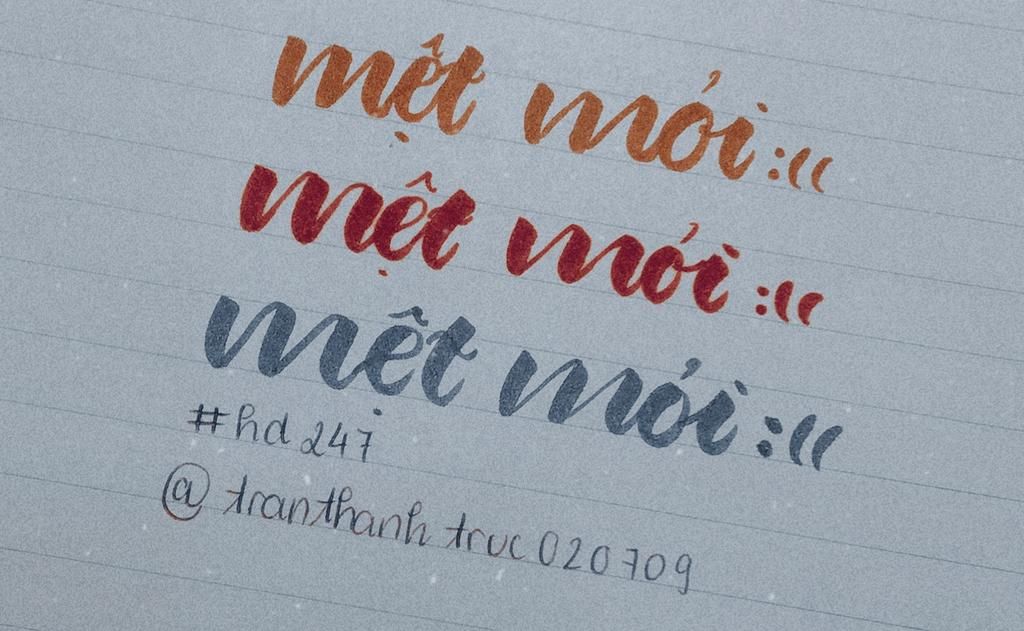 mệt mỏi :((
mệt mỏi :((
mệt mỏi :((
#hd247
@tranthanhtruc020709